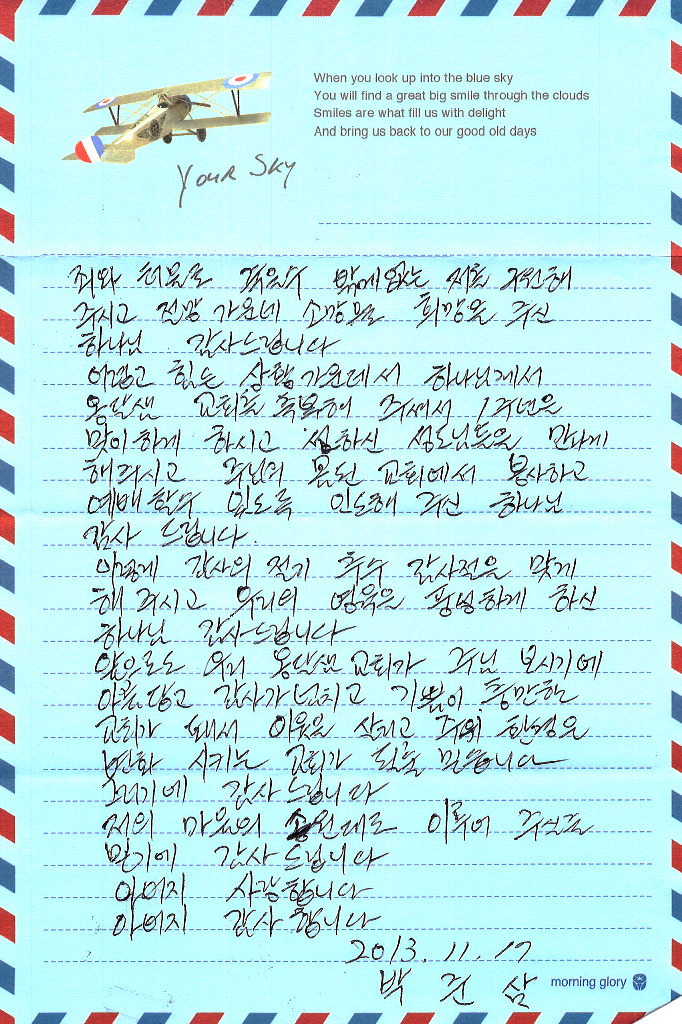 When you look up into the blue sky
You will find a great big smile through the clouds
Smiles are what fill us with delight
And bring us back to our good old days
Your Sky
죄와 허물로 죽을수 밖에없는 저를 구원해
주시고 절망 가운데 소망과 희망을 주신
하나님 감사드립니다
어렵고 힘든 상황가운데서 하나님께서
옹달샘 교회를 축복해 주셔서 1주년을
맞이하게 하시고 선하신 성도님들을 만나게
해주시고 주님의 몸된 교회에서 봉사하고
예배할수 있도록 인도해 주신 하나님
감사 드립니다.
이렇게 감사의 절기 추수 감사절을 맞게
해 주시고 우리의 영육을 풍성하게 하신
하나님 감사드립니다
앞으로도 우리 옹달샘교회가 주님 보시기에
아름답고 감사가넘치고 기쁨이 충만한
교회가 돼서 이웃을 살리고 주위 환경을
변화 시키는 교회가 될줄 믿습니다
그러기에 감사드립니다
저의 마음의 소원대로 이루어 주실줄
믿기에 감사드립니다
아버지 사랑합니다
아버지 감사합니다
2013. 11. 17
박 삼
morning glory